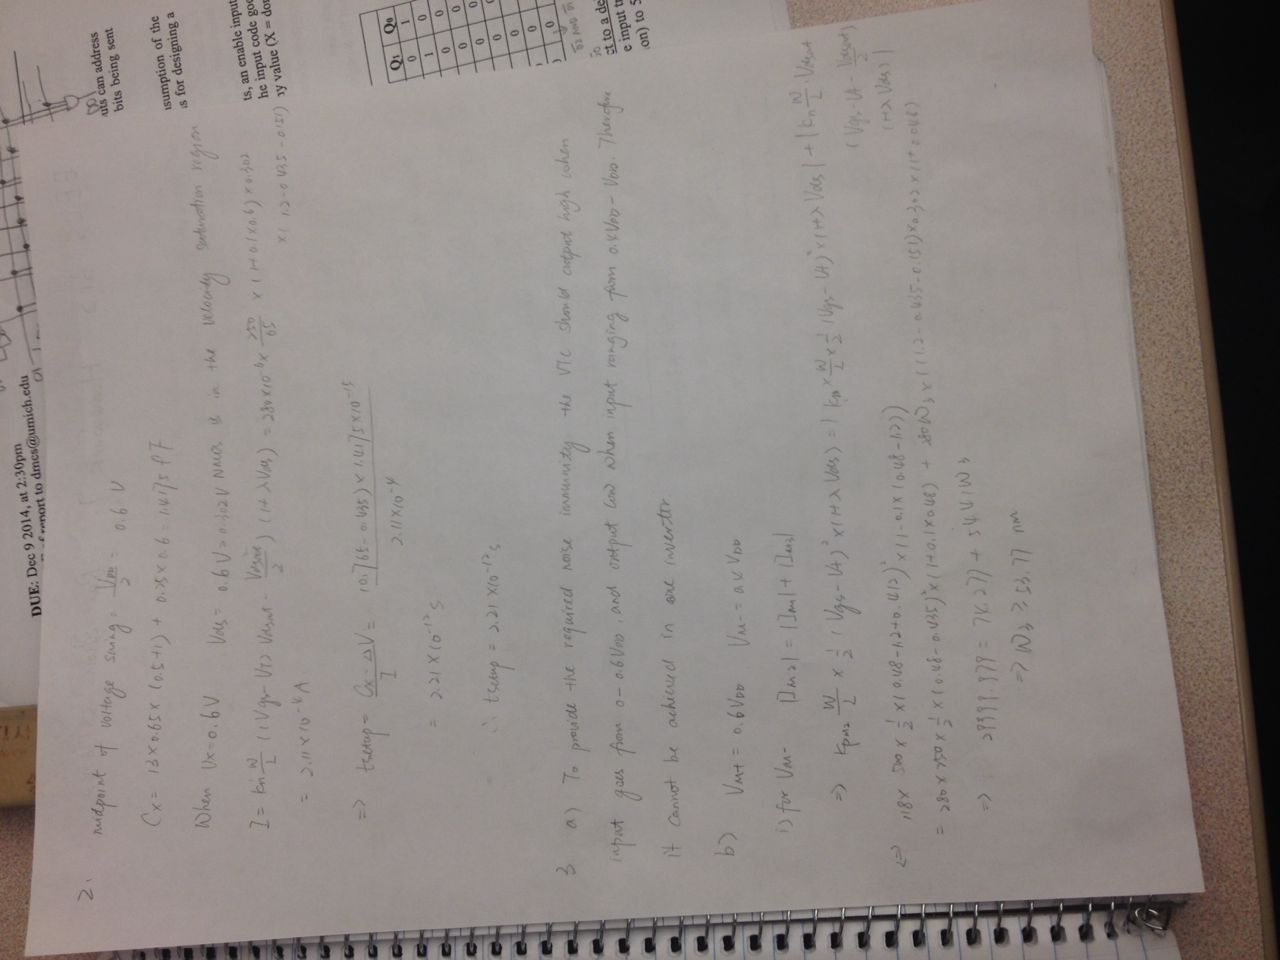 DUE: Dec 9 2014, at 2:30pm
of report to dmcs@umich.edu
2.
midpoint of voltage swing = VDD/2 = 0.6 V
Cx = 13×0.65×(0.5+1) + 0.25×0.6 = 1.4175 fF
When Vx=0.6V Vds = 0.6V>0.302V NMOS is in the velocity saturation region
I = kn W/L ((Vgs-Vt) Vdsat - Vdsat²/2) (1+λVds) = 280×10⁻⁶× 250/65 × (1+0.1×0.6) × 0.302
×(1.2-0.435-0.151)
= 2.11×10⁻⁴A
=> tsetup = Cx·ΔV/I = (0.765-0.435)×1.4175×10⁻¹⁵ / 2.11×10⁻⁴
= 2.21×10⁻¹²s
∴ tsetup = 2.21×10⁻¹²s
3 a) To provide the required noise immunity the VTC should output high when
input goes from 0-0.6VDD, and output low when input ranging from 0.4VDD-VDD. Therefore
it cannot be achieved in one inverter.
b) VM+ = 0.6VDD VM- = 0.4VDD
i) for VM- |IM2| = |IM1| + |IM3|
=> kpM2 W/L × 1/2 × (Vgs-Vt)² × (1+λVds) = | kn × W/L × 1/2 (Vgs-Vt)² × (1+λVds | + | kn W/L · Vdsat
(Vgs-Vt- Vdsat/2)
(1+λVds) |
<=> 118× 500 × 1/2 ×(0.48-1.2+0.412)² ×(1-0.1×(0.48-1.2))
= 280×250× 1/2 ×(0.48-0.435)²×(1+0.1×0.48) + 280W3×((1.2-0.435-0.151)×0.302×(1+0.048)
=> = 74.277 + 54.41W3
=> W3 ≥ 53.77 nm
uts can address
bits being sent
sumption of the
s for designing a
ts, an enable input
he input code goe
ny value (X = don
Q1 Q0
0 1
1 0
0 0
0 0
0 0
0 0
0 0
0
0
ct to a de
e input tr
on) to 5